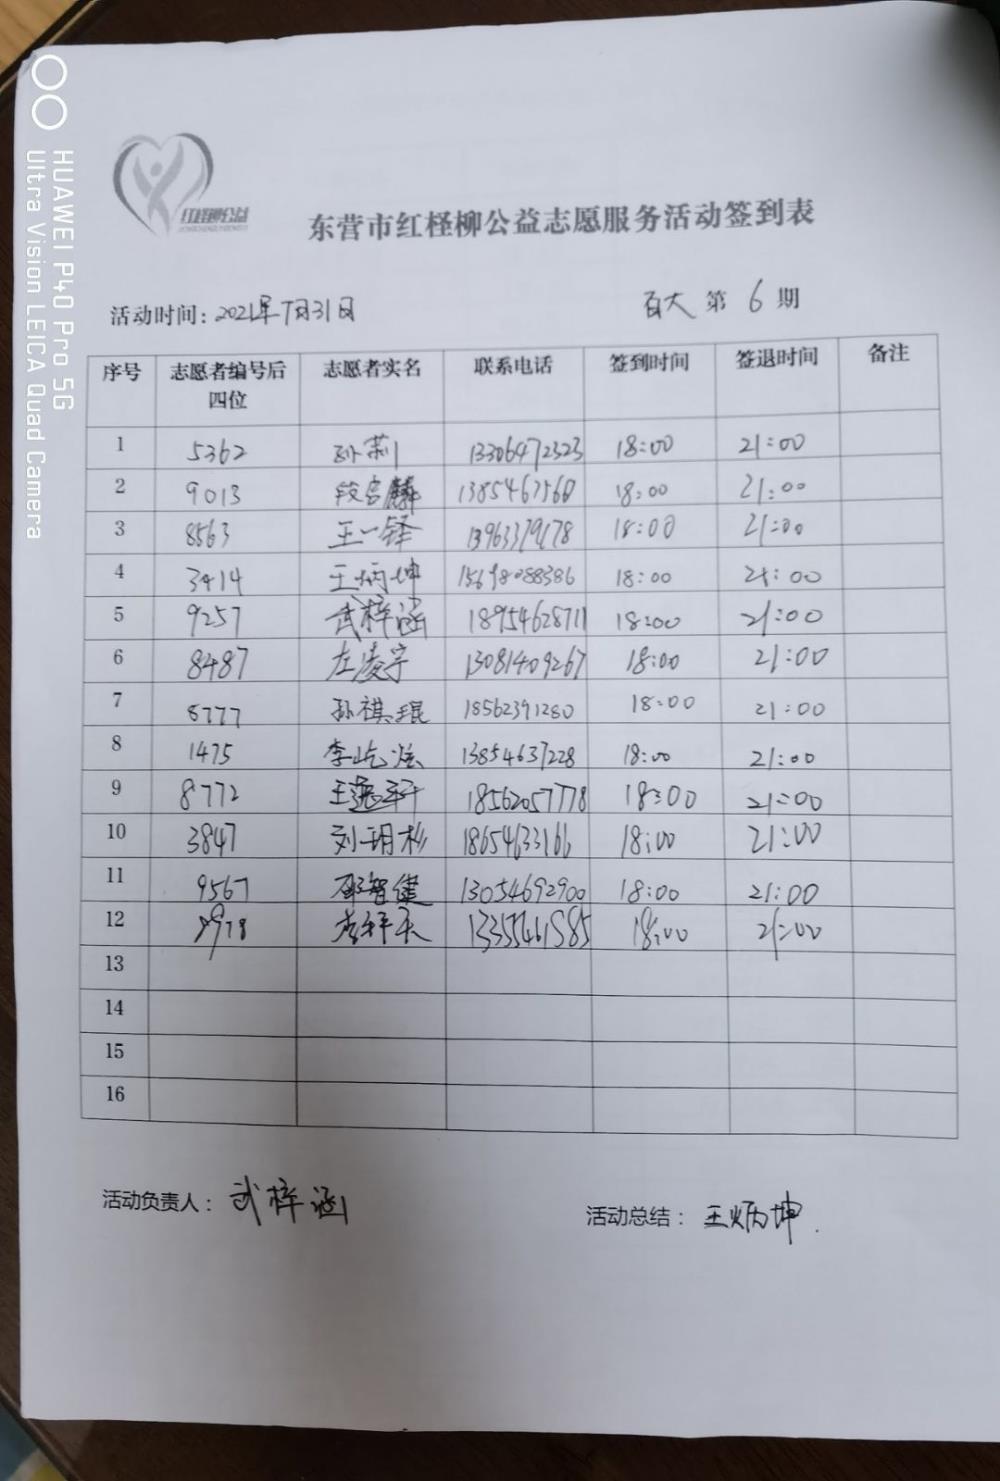 HUAWEI P40 Pro 5G
Ultra Vision LEICA Quad Camera
红柽柳公益
东营市红柽柳公益志愿服务活动签到表
活动时间: 2021年7月31日 百大 第 6 期
序号 志愿者编号后四位 志愿者实名 联系电话 签到时间 签退时间 备注
1 5362 孙莉 13306472323 18:00 21:00
2 9013 18:00 21:00
3 8563 王一铎 13963379178 18:00 21:00
4 3414 王炳坤 15698088386 18:00 21:00
5 9257 武梓涵 18954628711 18:00 21:00
6 8487 左凌宇 13081409267 18:00 21:00
7 8777 孙祺琨 18562391280 18:00 21:00
8 1475 李屹泫 13854637228 18:00 21:00
9 8772 18562057778 18:00 21:00
10 3847 刘玥杉 18654633166 18:00 21:00
11 9567 邵智健 13054692900 18:00 21:00
12 18:00 21:00
13
14
15
16
活动负责人: 武梓涵 活动总结: 王炳坤.